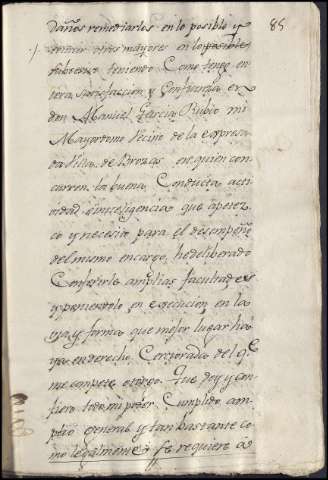 85
daños remediarlos en lo posible y
evitar otros mayores en lo posible
teniendo Como tengo en
tera Satisfacion y Confianza en
don Manuel Garcia Rubio mi
Mayordomo Vecino de la expresa
da Villa de Brozas en quien con
curren la buena Conducta acti
vidad e inteligencia que apetez
co y necesito para el desempeño
del mismo encargo, he deliberado
Conferirle amplias facultades
y poniendolo en execucion en la
via y forma que mejor lugar ha
ya en derecho Cerziorada del q.e
me compete otorgo. Que doy y con
fiero todo mi poder Cumplido am
plio general y tan bastante co
mo legalmente se requiere a